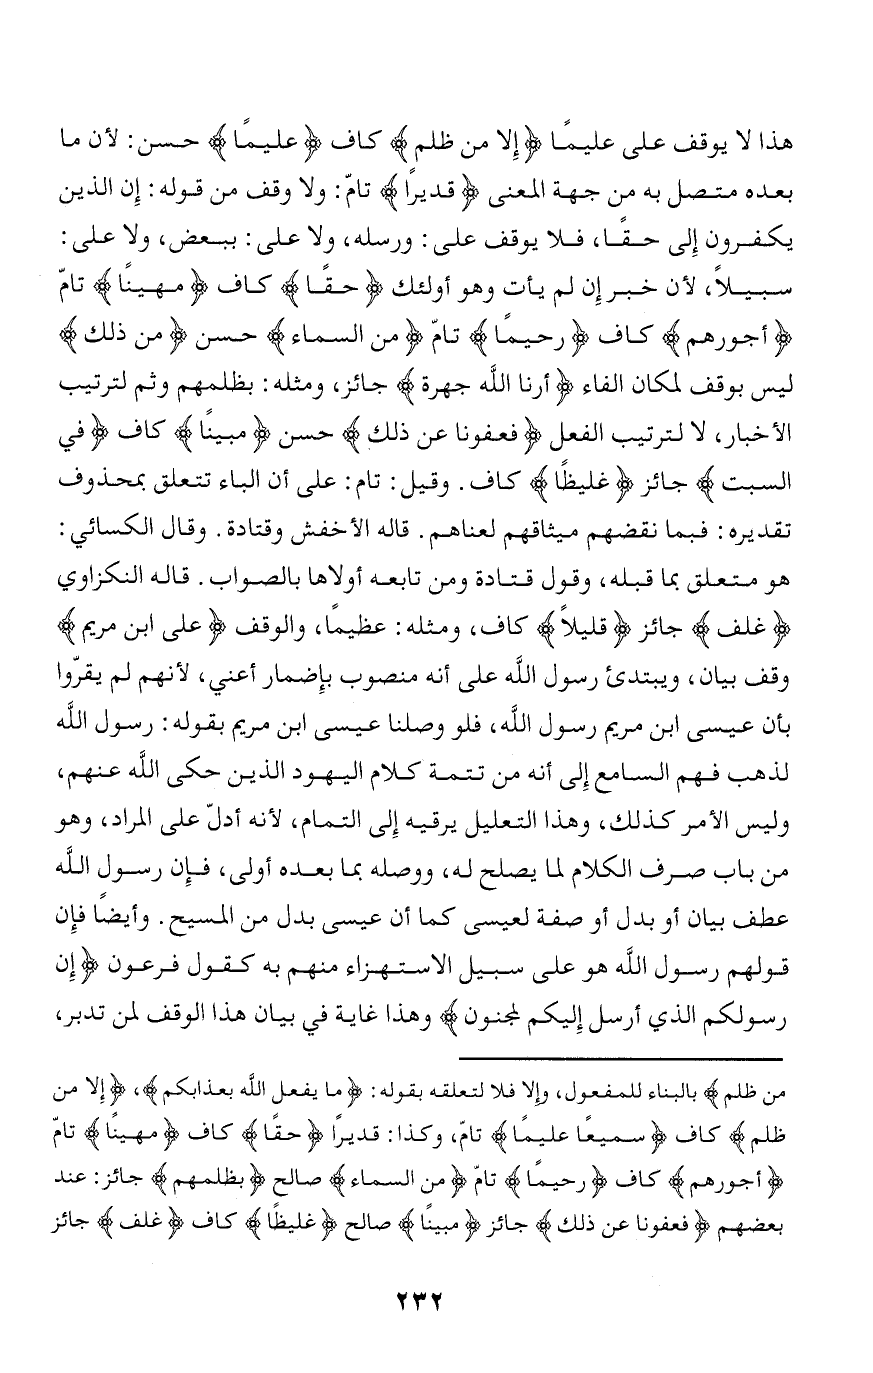 هذا لا يوقف على عليمًا ﴿إلا من ظلم﴾ كاف ﴿عليمًا﴾ حسن: لأن ما
بعده متصل به من جهة المعنى ﴿قديرًا﴾ تامّ: ولا وقف من قوله: إن الذين
يكفرون إلى حقًا، فلا يوقف على: ورسله، ولا على: ببعض، ولا على:
سبيلاً، لأن خبر إن لم يأت وهو أولئك ﴿حقًا﴾ كاف ﴿مهينًا﴾ تامّ
﴿أجورهم﴾ كاف ﴿رحيمًا﴾ تامّ ﴿من السماء﴾ حسن ﴿من ذلك﴾
ليس بوقف لمكان الفاء ﴿أرنا الله جهرة﴾ جائز، ومثله: بظلمهم وثم لترتيب
الأخبار، لا لترتيب الفعل ﴿فعفونا عن ذلك﴾ حسن ﴿مبينًا﴾ كاف ﴿في
السبت﴾ جائز ﴿غليظًا﴾ كاف. وقيل: تام: على أن الباء تتعلق بمحذوف
تقديره: فبما نقضهم ميثاقهم لعناهم. قاله الأخفش وقتادة. وقال الكسائي:
هو متعلق بما قبله، وقول قتادة ومن تابعه أولاها بالصواب. قاله النكزاوي
﴿غلف﴾ جائز ﴿قليلاً﴾ كاف، ومثله: عظيمًا، والوقف ﴿على ابن مريم﴾
وقف بيان، ويبتدئ رسول الله على أنه منصوب بإضمار أعني، لأنهم لم يقرّوا
بأن عيسى ابن مريم رسول الله، فلو وصلنا عيسى ابن مريم بقوله: رسول الله
لذهب فهم السامع إلى أنه من تتمة كلام اليهود الذين حكى الله عنهم،
وليس الأمر كذلك، وهذا التعليل يرقيه إلى التمام، لأنه أدلّ على المراد، وهو
من باب صرف الكلام لما يصلح له، ووصله بما بعده أولى، فإن رسول الله
عطف بيان أو بدل أو صفة لعيسى كما أن عيسى بدل من المسيح. وأيضًا فإن
قولهم رسول الله هو على سبيل الاستهزاء منهم به كقول فرعون ﴿إن
رسولكم الذي أرسل إليكم لمجنون﴾ وهذا غاية في بيان هذا الوقف لمن تدبر،
من ظلم﴾ بالبناء للمفعول، وإلا فلا لتعلقه بقوله: ﴿ما يفعل الله بعذابكم﴾، ﴿إلا من
ظلم﴾ كاف ﴿سميعًا عليمًا﴾ تامّ، وكذا: قديرًا ﴿حقًا﴾ كاف ﴿مهينًا﴾ تامّ
﴿أجورهم﴾ كاف ﴿رحيمًا﴾ تامّ ﴿من السماء﴾ صالح ﴿بظلمهم﴾ جائز: عند
بعضهم ﴿فعفونا عن ذلك﴾ جائز ﴿مبينًا﴾ صالح ﴿غليظًا﴾ كاف ﴿غلف﴾ جائز
٢٣٢